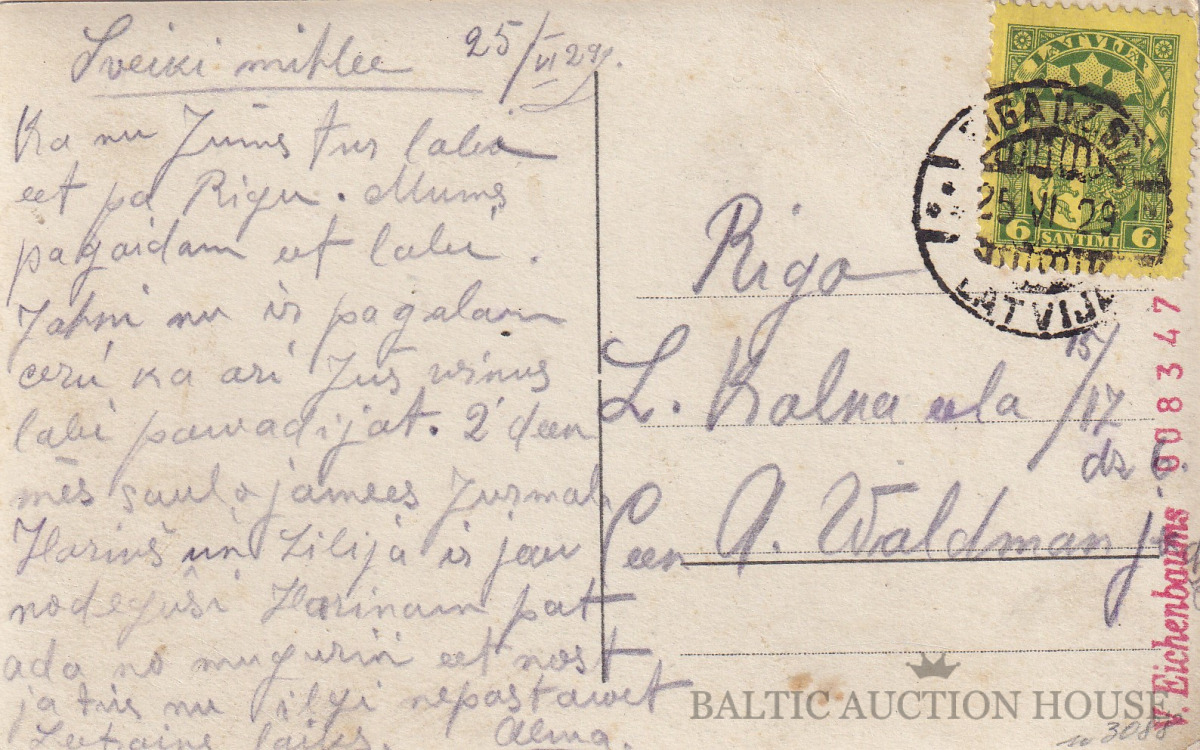 Sveiki mihlee 25/VI 29.
Ka nu Jums tur labi
eet pa Rigu. Mums
pagaidam eet labi.
Jahni nu ir pagalam
ceru ka ari Jūs winus
labi pawadijat. 2 deen
mēs sauļojamees Jurmalā
Harijs un Lilija ir jau
nodeguši Harinam pat
ada no muguriņ eet nost
ja tur nu ilgi nepastawet
laiks. Alma.
LATVIJA
6 SANTIMI 6
RIGA
25 VI 29
LATVIJA
Riga
L. Kalna eela 15/17
dz 6.
Leen A. Waldman
V. Eichenbaums 008347
BALTIC AUCTION HOUSE
3088